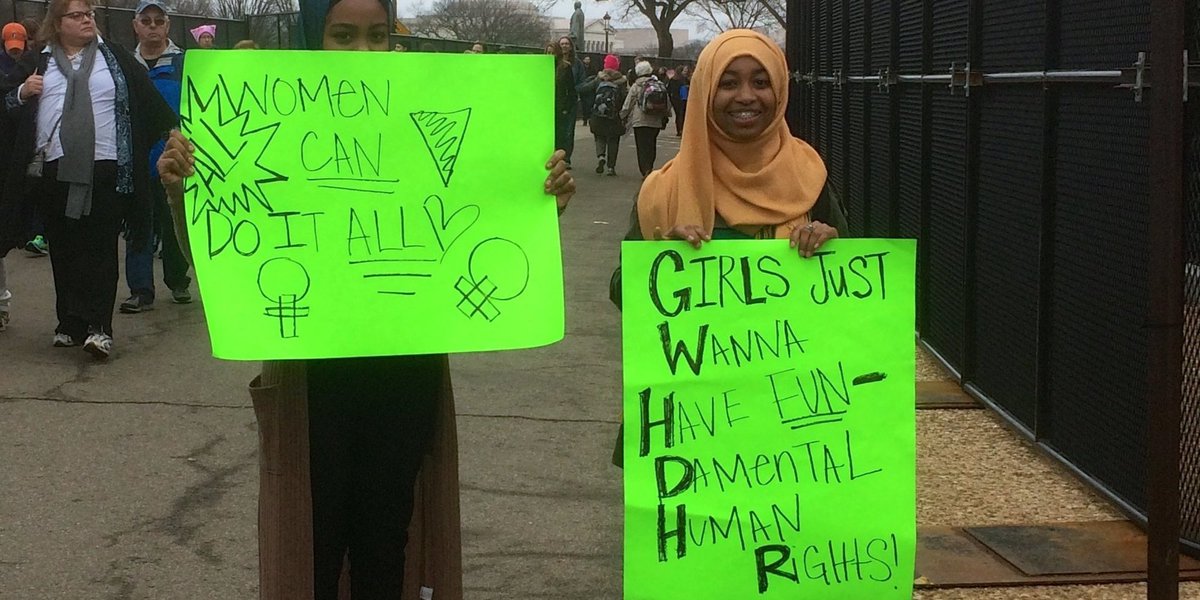 WOMEN
ALL
CAN
DO IT ALL
GIRLS JUST
WANNA
HAVE FUN-
DAMENTAL
HUMAN
RIGHTS!